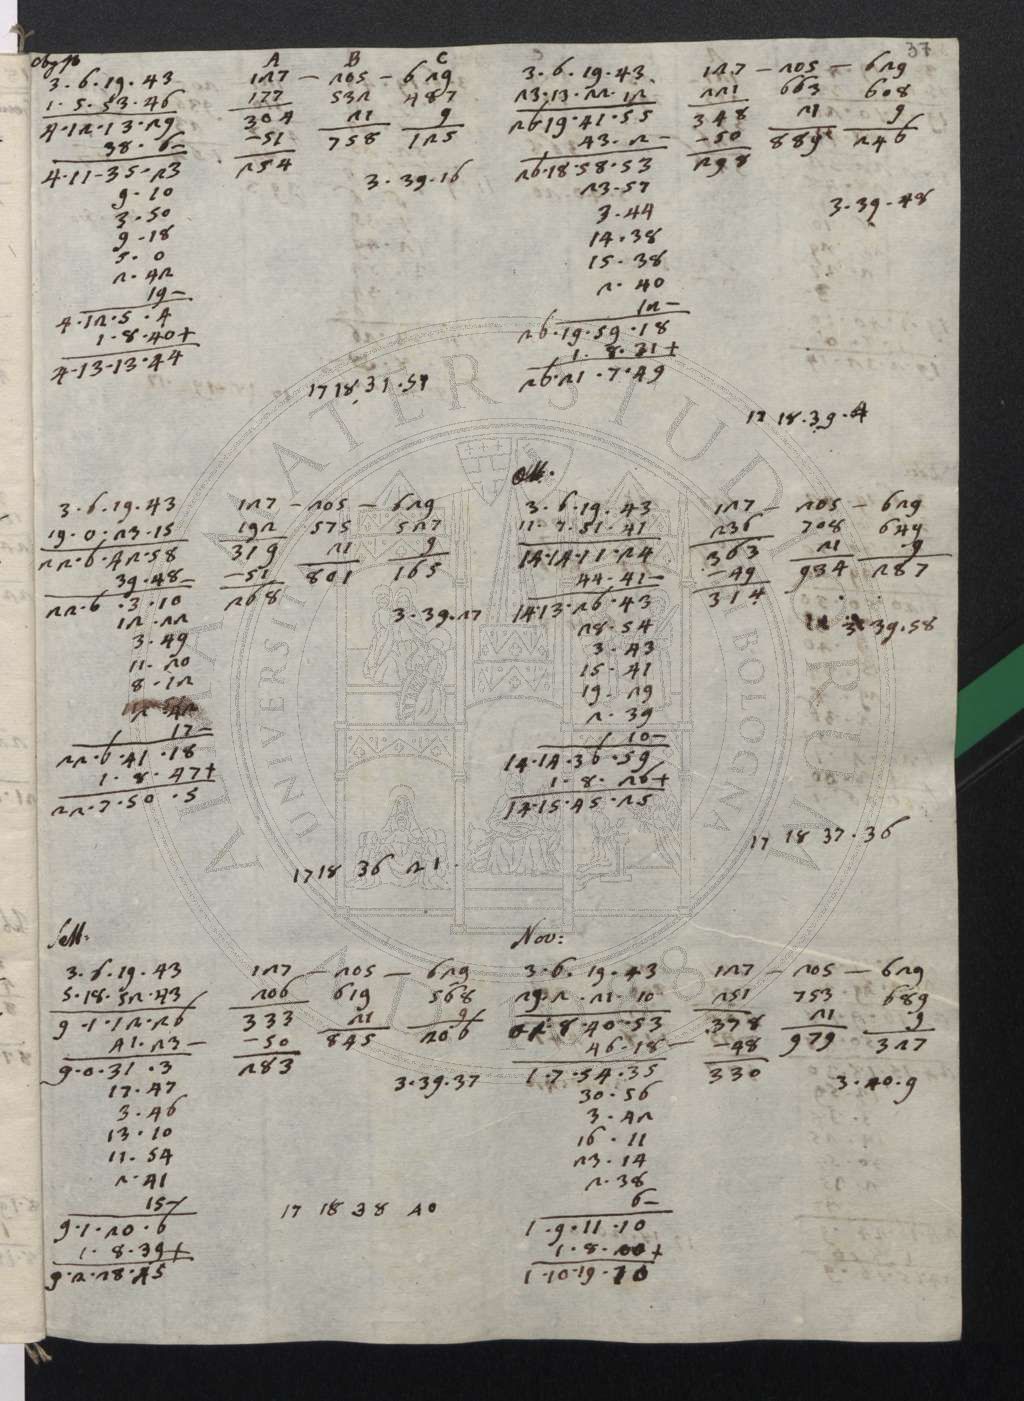 37
A B C
3.6.19.43 127 - 205 - 629
1.5.53.46 177 532 487
4.12.13.29 304 21 9
38.6- -51 758 125
4.11.35.23 254
9.10 3.39.16
3.50
9.18
5.0
2.42
19-
4.12.5.4
1.8.40+
4.13.13.44
17 18.31.
3.6.19.43 127 - 205 - 629
23.13.22.12 221 663 608
26.19.41.55 348 21 9
43.2- -50 889 246
26.18.58.53 298
23.57 3.39.48
3.44
14.38
15.38
2.40
12-
26.19.59.18
1.8.31+
26.21.7.49
17 18.39.4
3.6.19.43 127 - 205 - 629
19.0.23.15 192 575 527
22.6.42.58 319 21 9
39.48- -51 801 165
22.6.3.10 268
12.22 3.39.27
3.49
11.20
8.12
2.42
17-
22.6.41.18
1.8.47+
22.7.50.5
17 18 36 21
Ott.
3.6.19.43 127 - 205 - 629
11.7.51.41 236 708 649
14.14.11.24 363 21 9
44.41- -49 934 287
14.13.26.43 314
28.54 3.39.58
3.43
15.41
19.29
2.39
10-
14.14.36.59
1.8.26+
14.15.45.25
17 18 37.36
Sett:
3.6.19.43 127 - 205 - 629
5.18.52.43 206 619 568
9.1.12.26 333 21 9
41.23- -50 845 206
9.0.31.3 283
17.47 3.39.37
3.46
13.10
11.54
2.41
15-
9.1.20.6
1.8.39+
9.2.28.45
17 18 38 40
Nov:
3.6.19.43 127 - 205 - 629
29.2.21.10 251 753 689
1.8.40.53 378 21 9
46.18- -48 979 327
1.7.54.35 330
30.56 3.40.9
3.42
16.11
23.14
2.38
6-
1.9.11.10
1.8.00+
1.10.19.10
ALMA MATER STUDIORUM
UNIVERSITÀ DI BOLOGNA